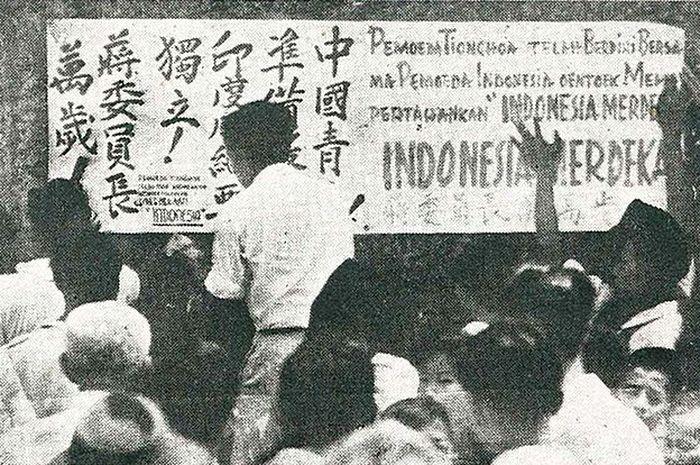 中國青
準備
印度
獨立！
蔣委員長
萬歲
PEMOEDA TIONGHOA TELAH BERDIRI BERSA
MA PEMOEDA INDONESIA OENTOEK MEM
PERTAHANKAN "INDONESIA MERDEK
INDONESIA MERDEKA
"INDONESIA"